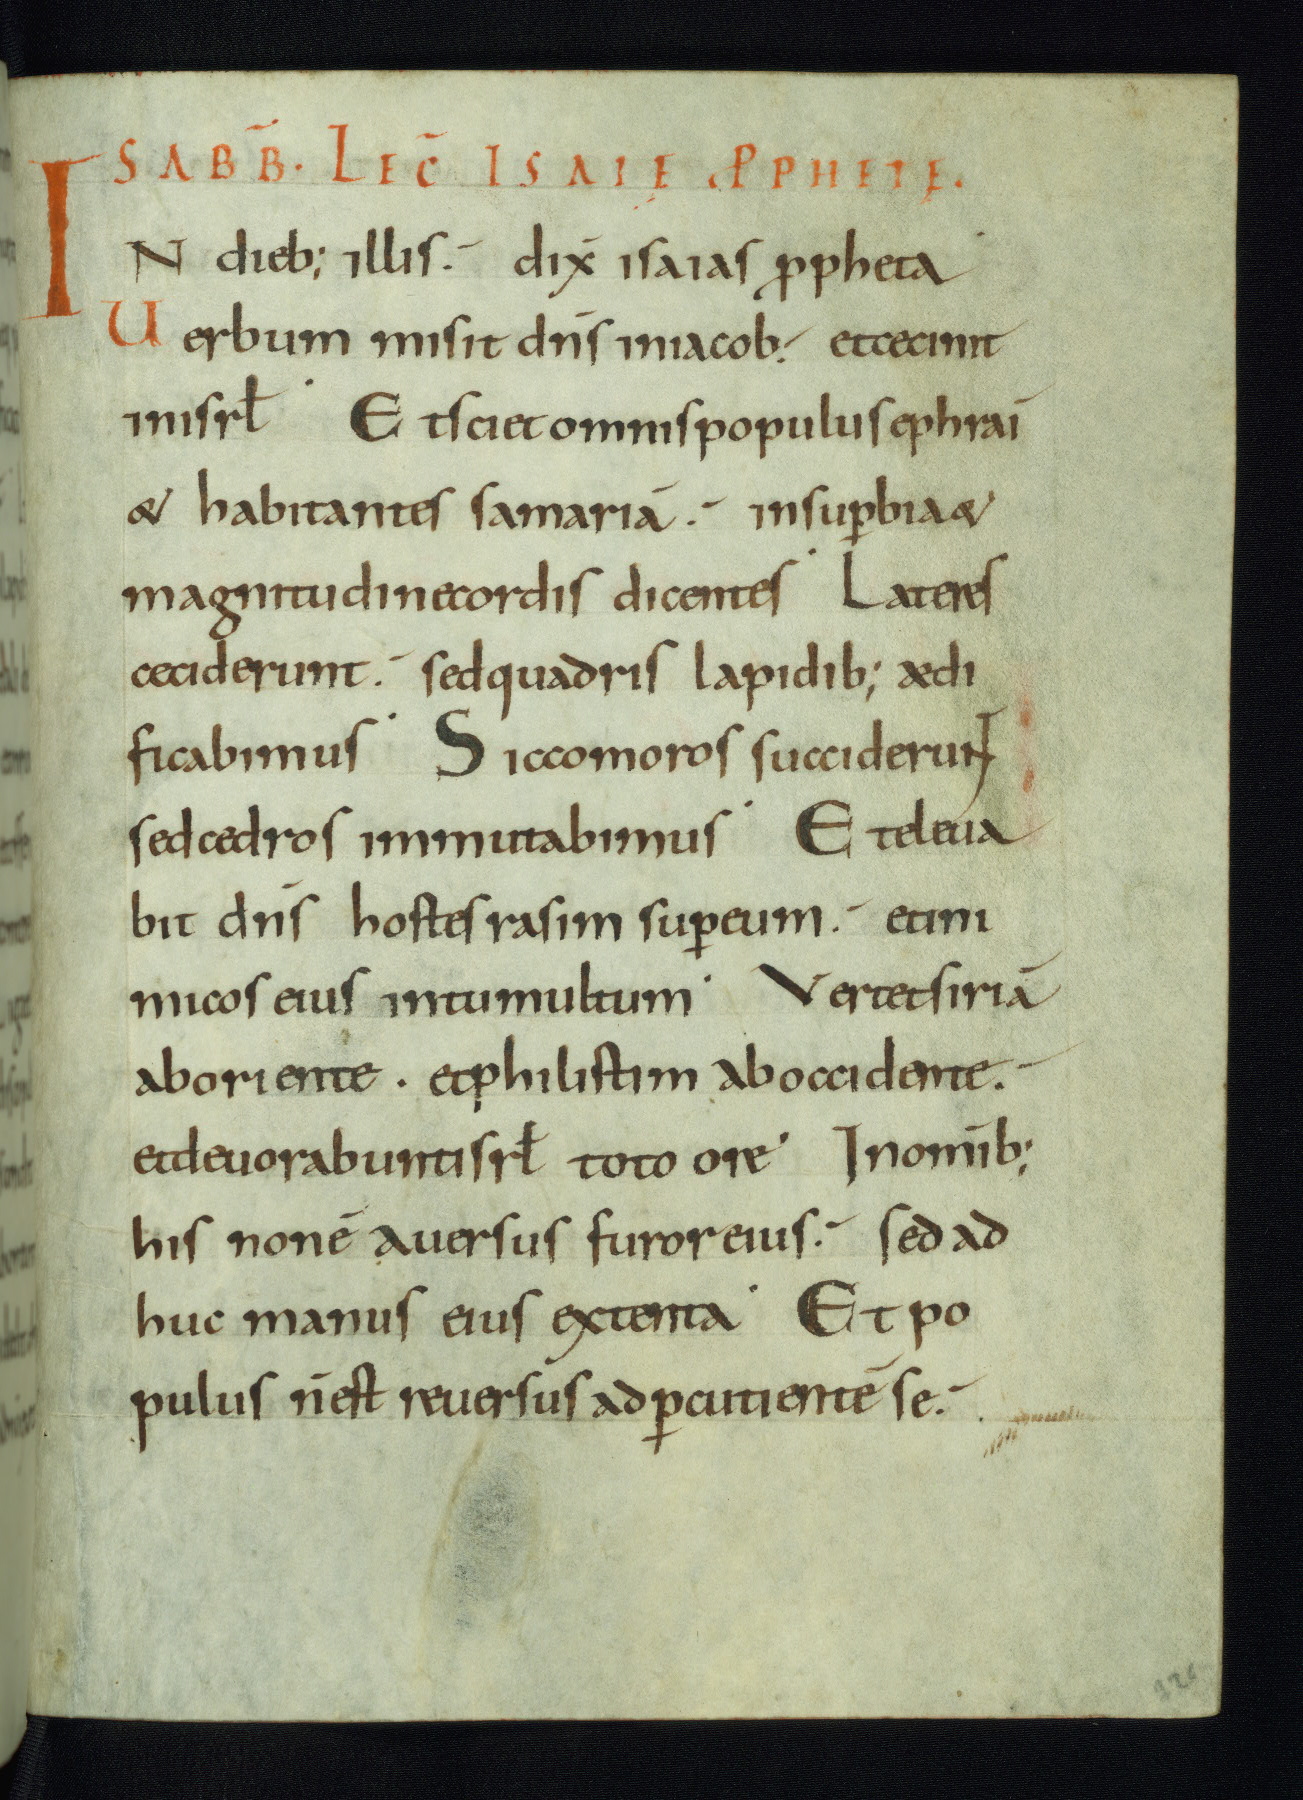 SABB̄. LEC̄ ISAIE ꝒPHETE.
IN dieb; illis. dix̄ isaias ꝓpheta
Uerbum misit dn̄s iniacob. etcecinit
inisrł Etscietomnispopulusephraī
& habitantes samariā. insuꝑbia&
magnitudinecordis dicentes Lateres
ceciderunt. sedquadris lapidib; ædi
ficabimus Siccomoros succiderunt
sedcedros immutabimus Eteleua
bit dn̄s hostesrasim suꝑeum. etini
micos eius intumultum Vertetsiriā
aboriente. etphilistim aboccidente.
etdeuorabuntisrł toto ore Inomīb;
his nonē auersus furoreius. sedad
huc manus eius extenta Et po
pulus n̄est reuersus adꝑcutientē se.